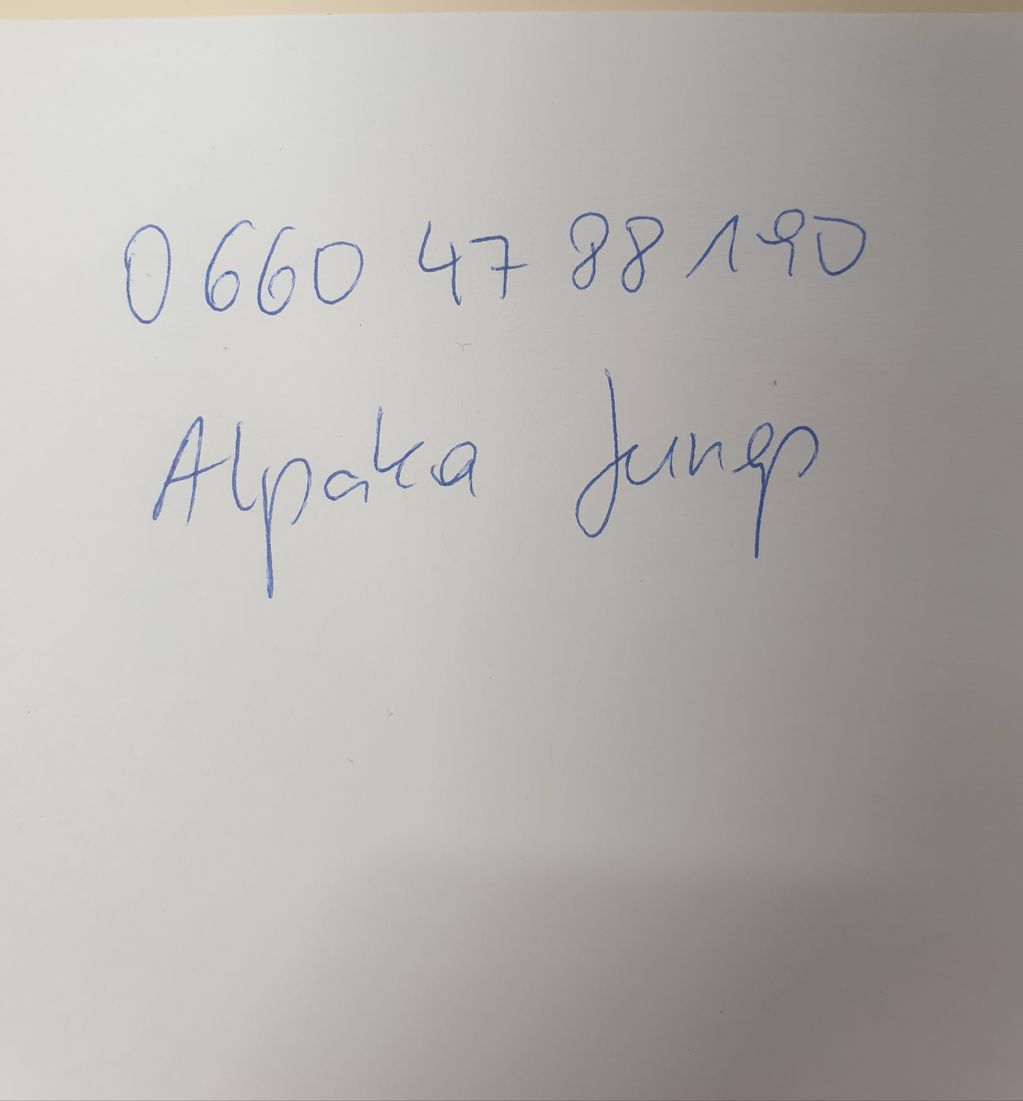 0660 47 88 190
Alpaka Jungs